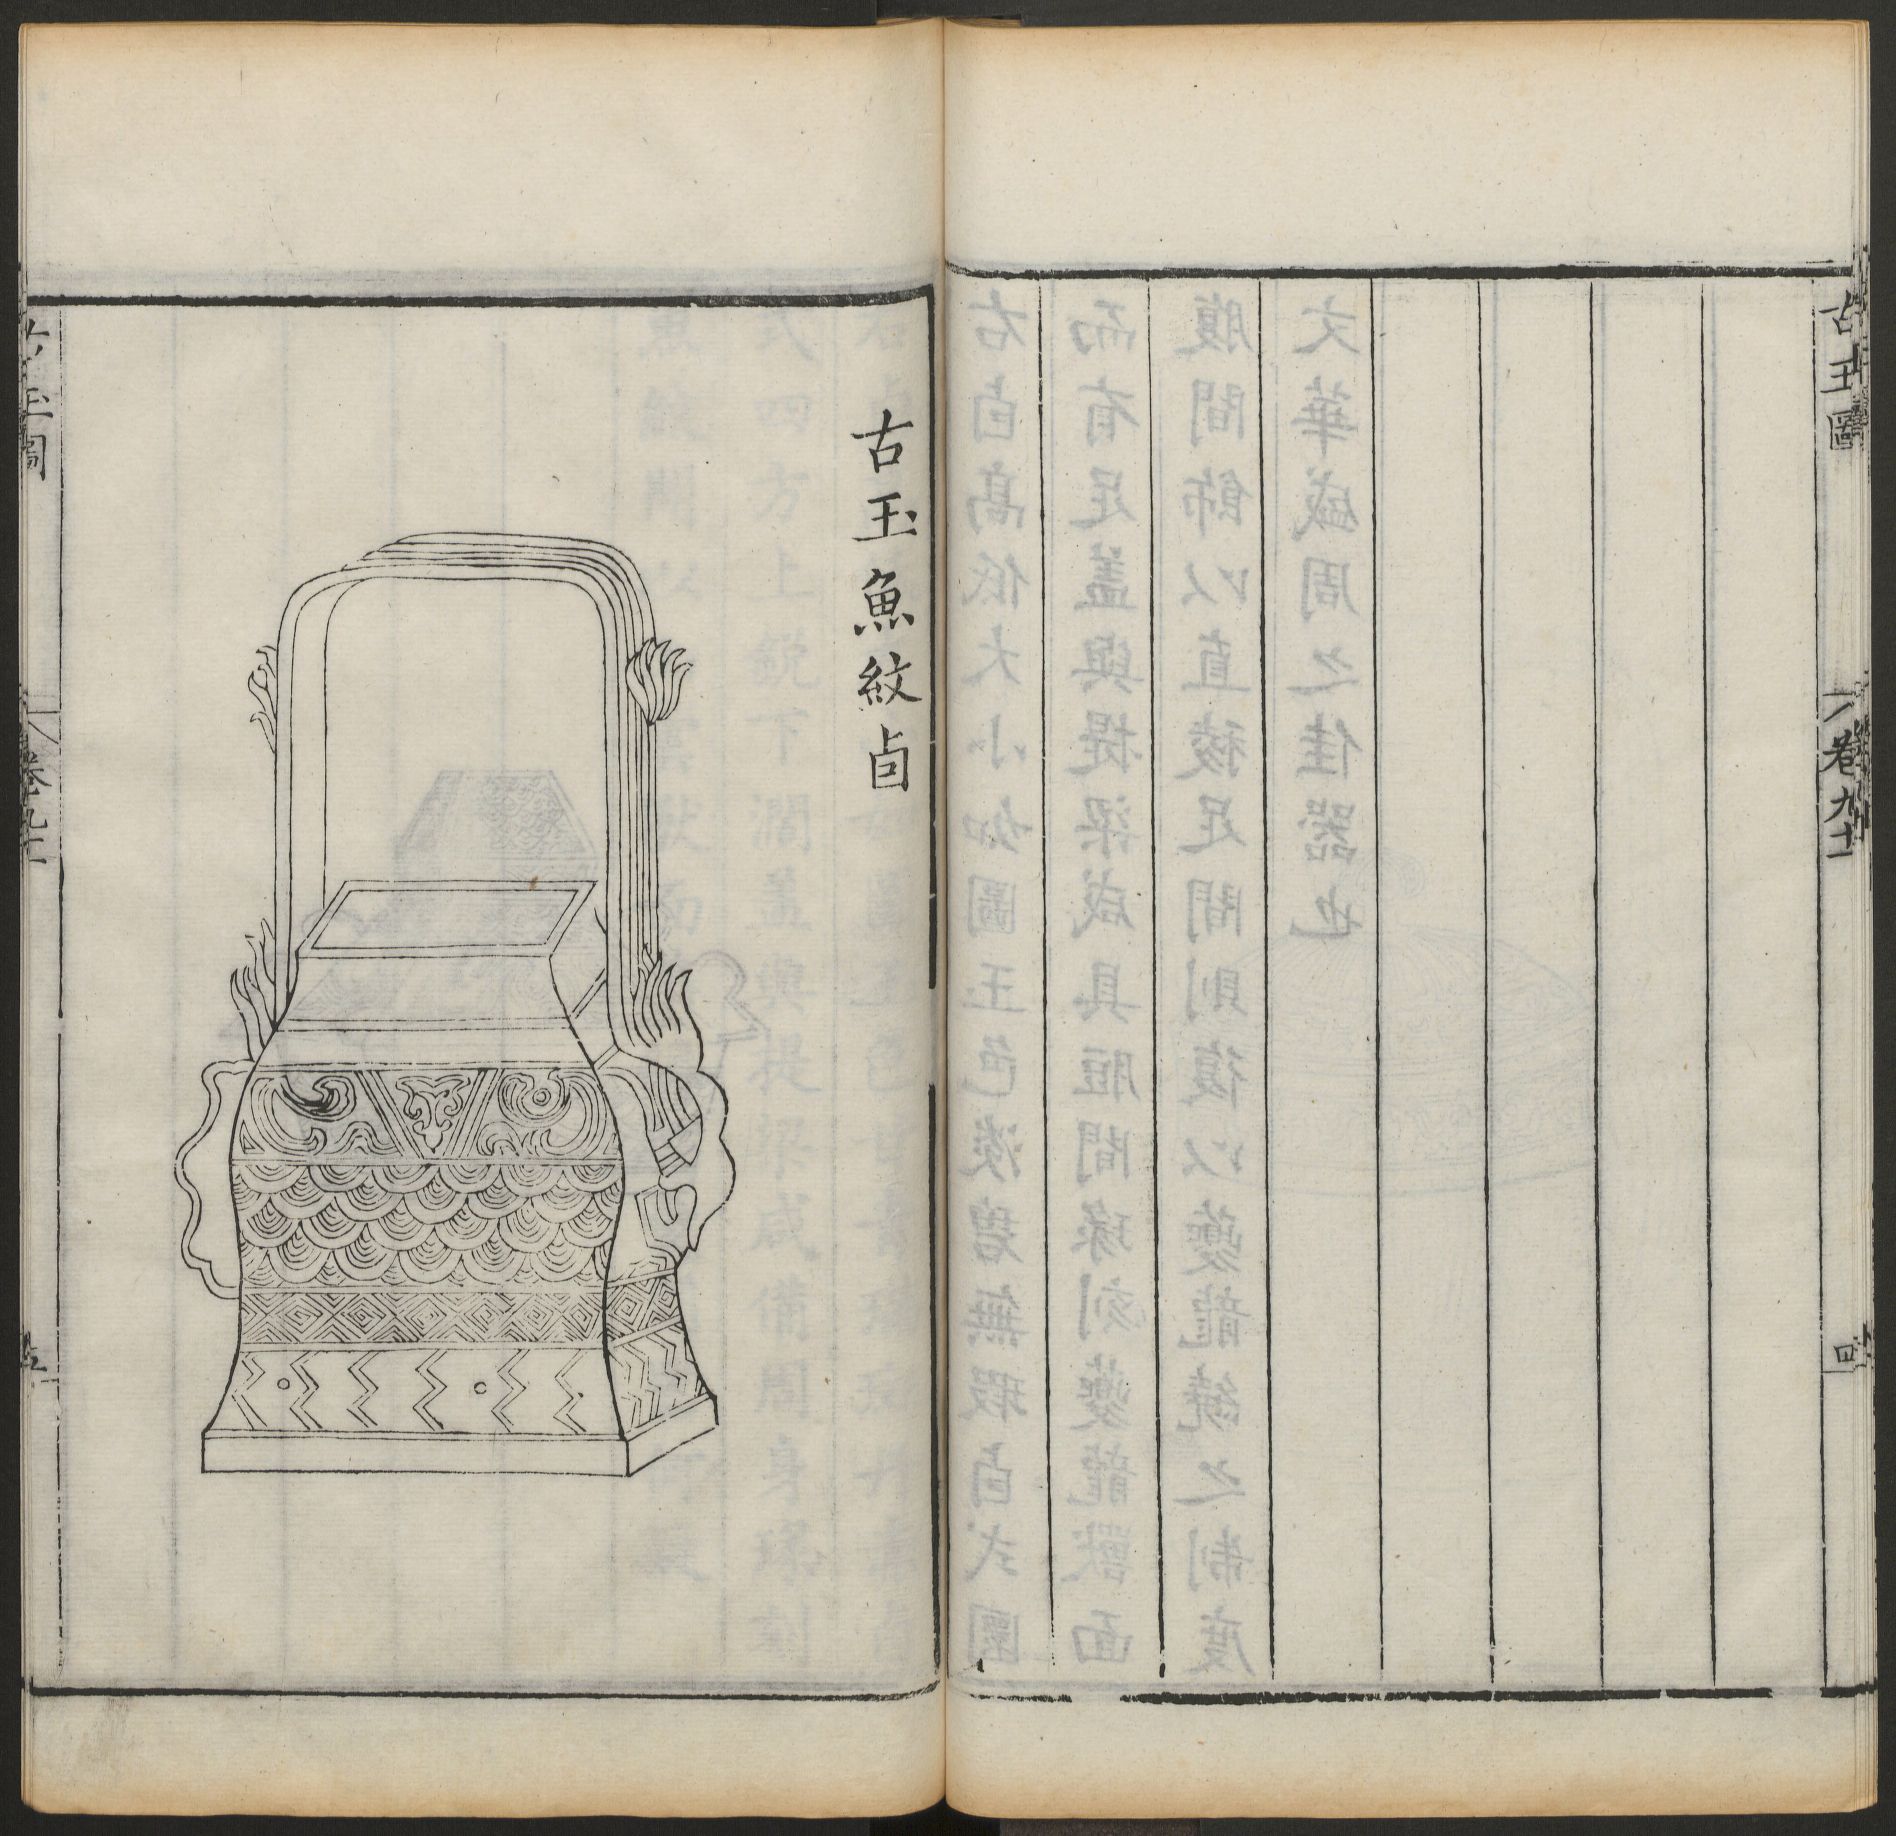 古玉圖
卷九十一
四
古玉魚紋卣
古玉圖
卷九十一
五